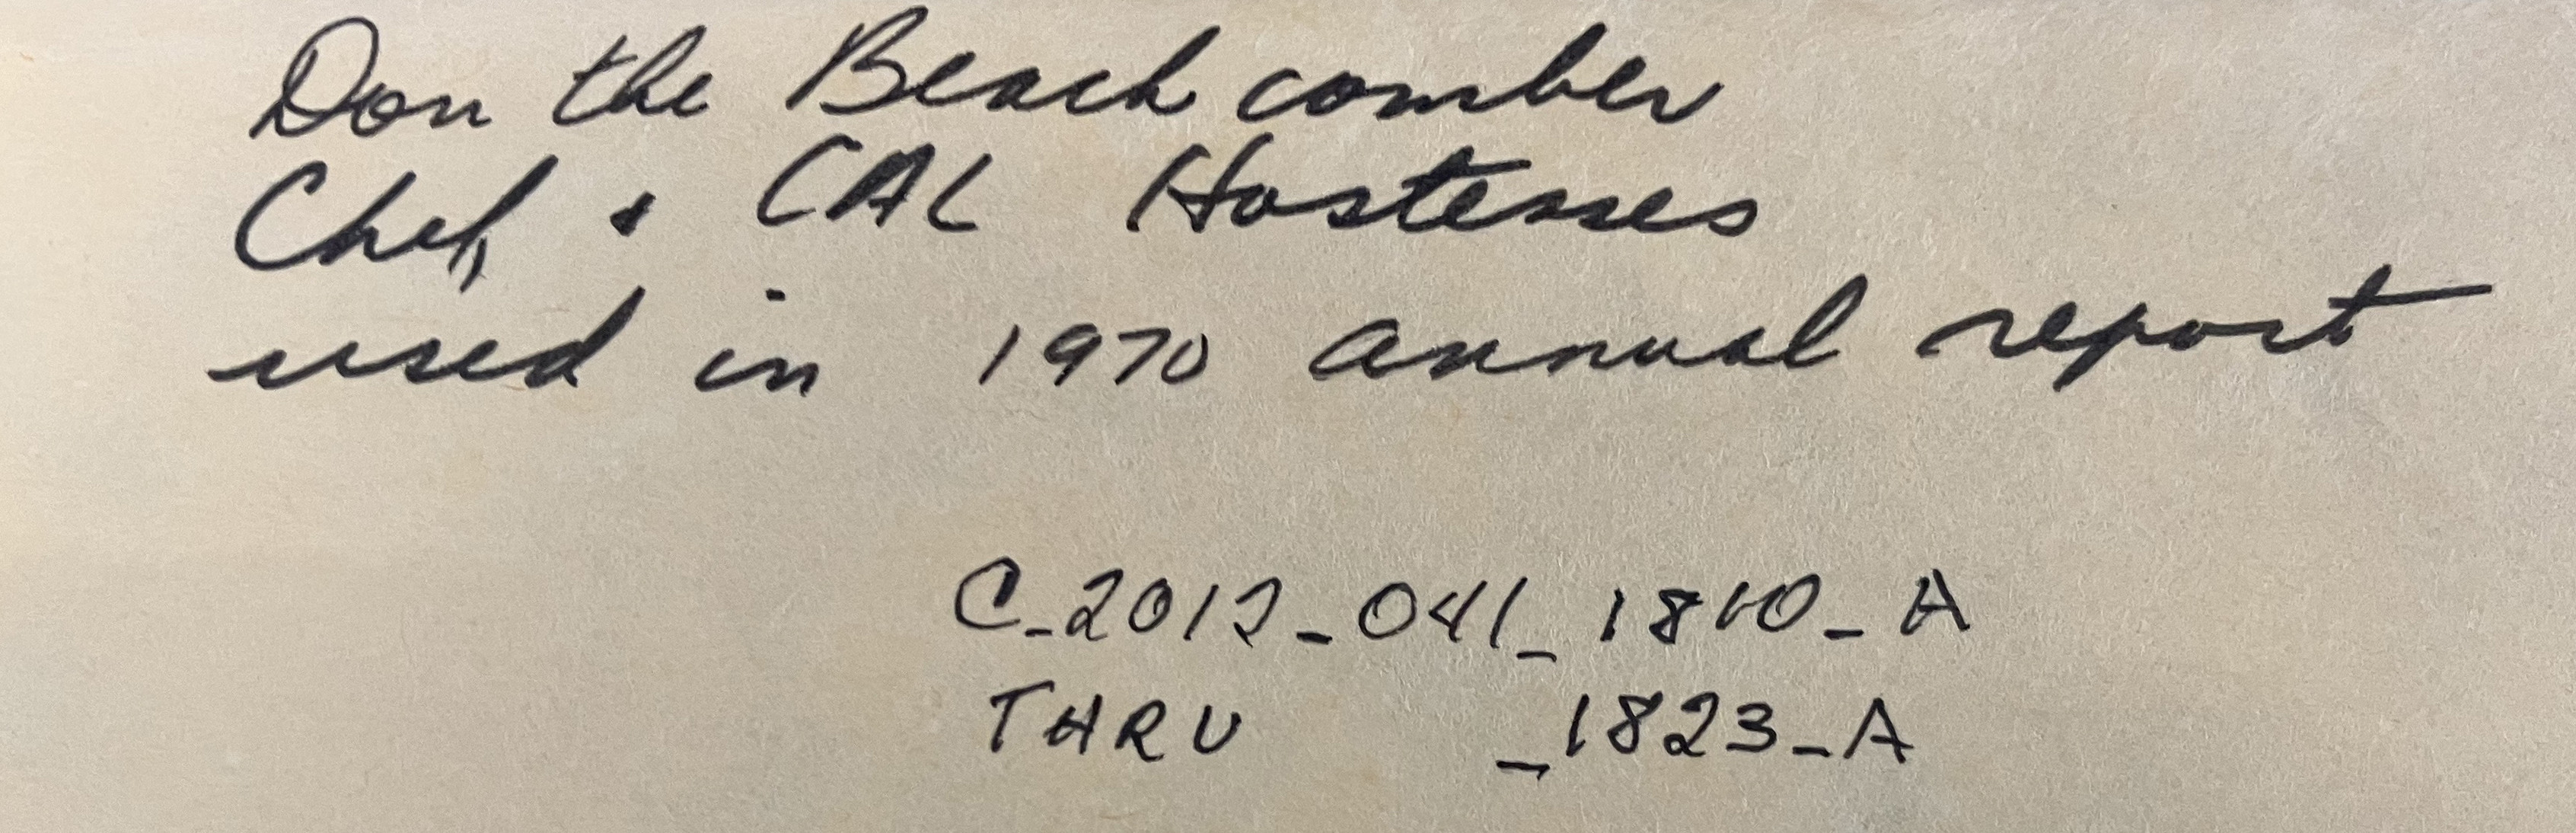 Don the Beach comber
Chef, & CAL Hostesses
used in 1970 annual report
C_2012_041_1810_A
THRU _1823_A